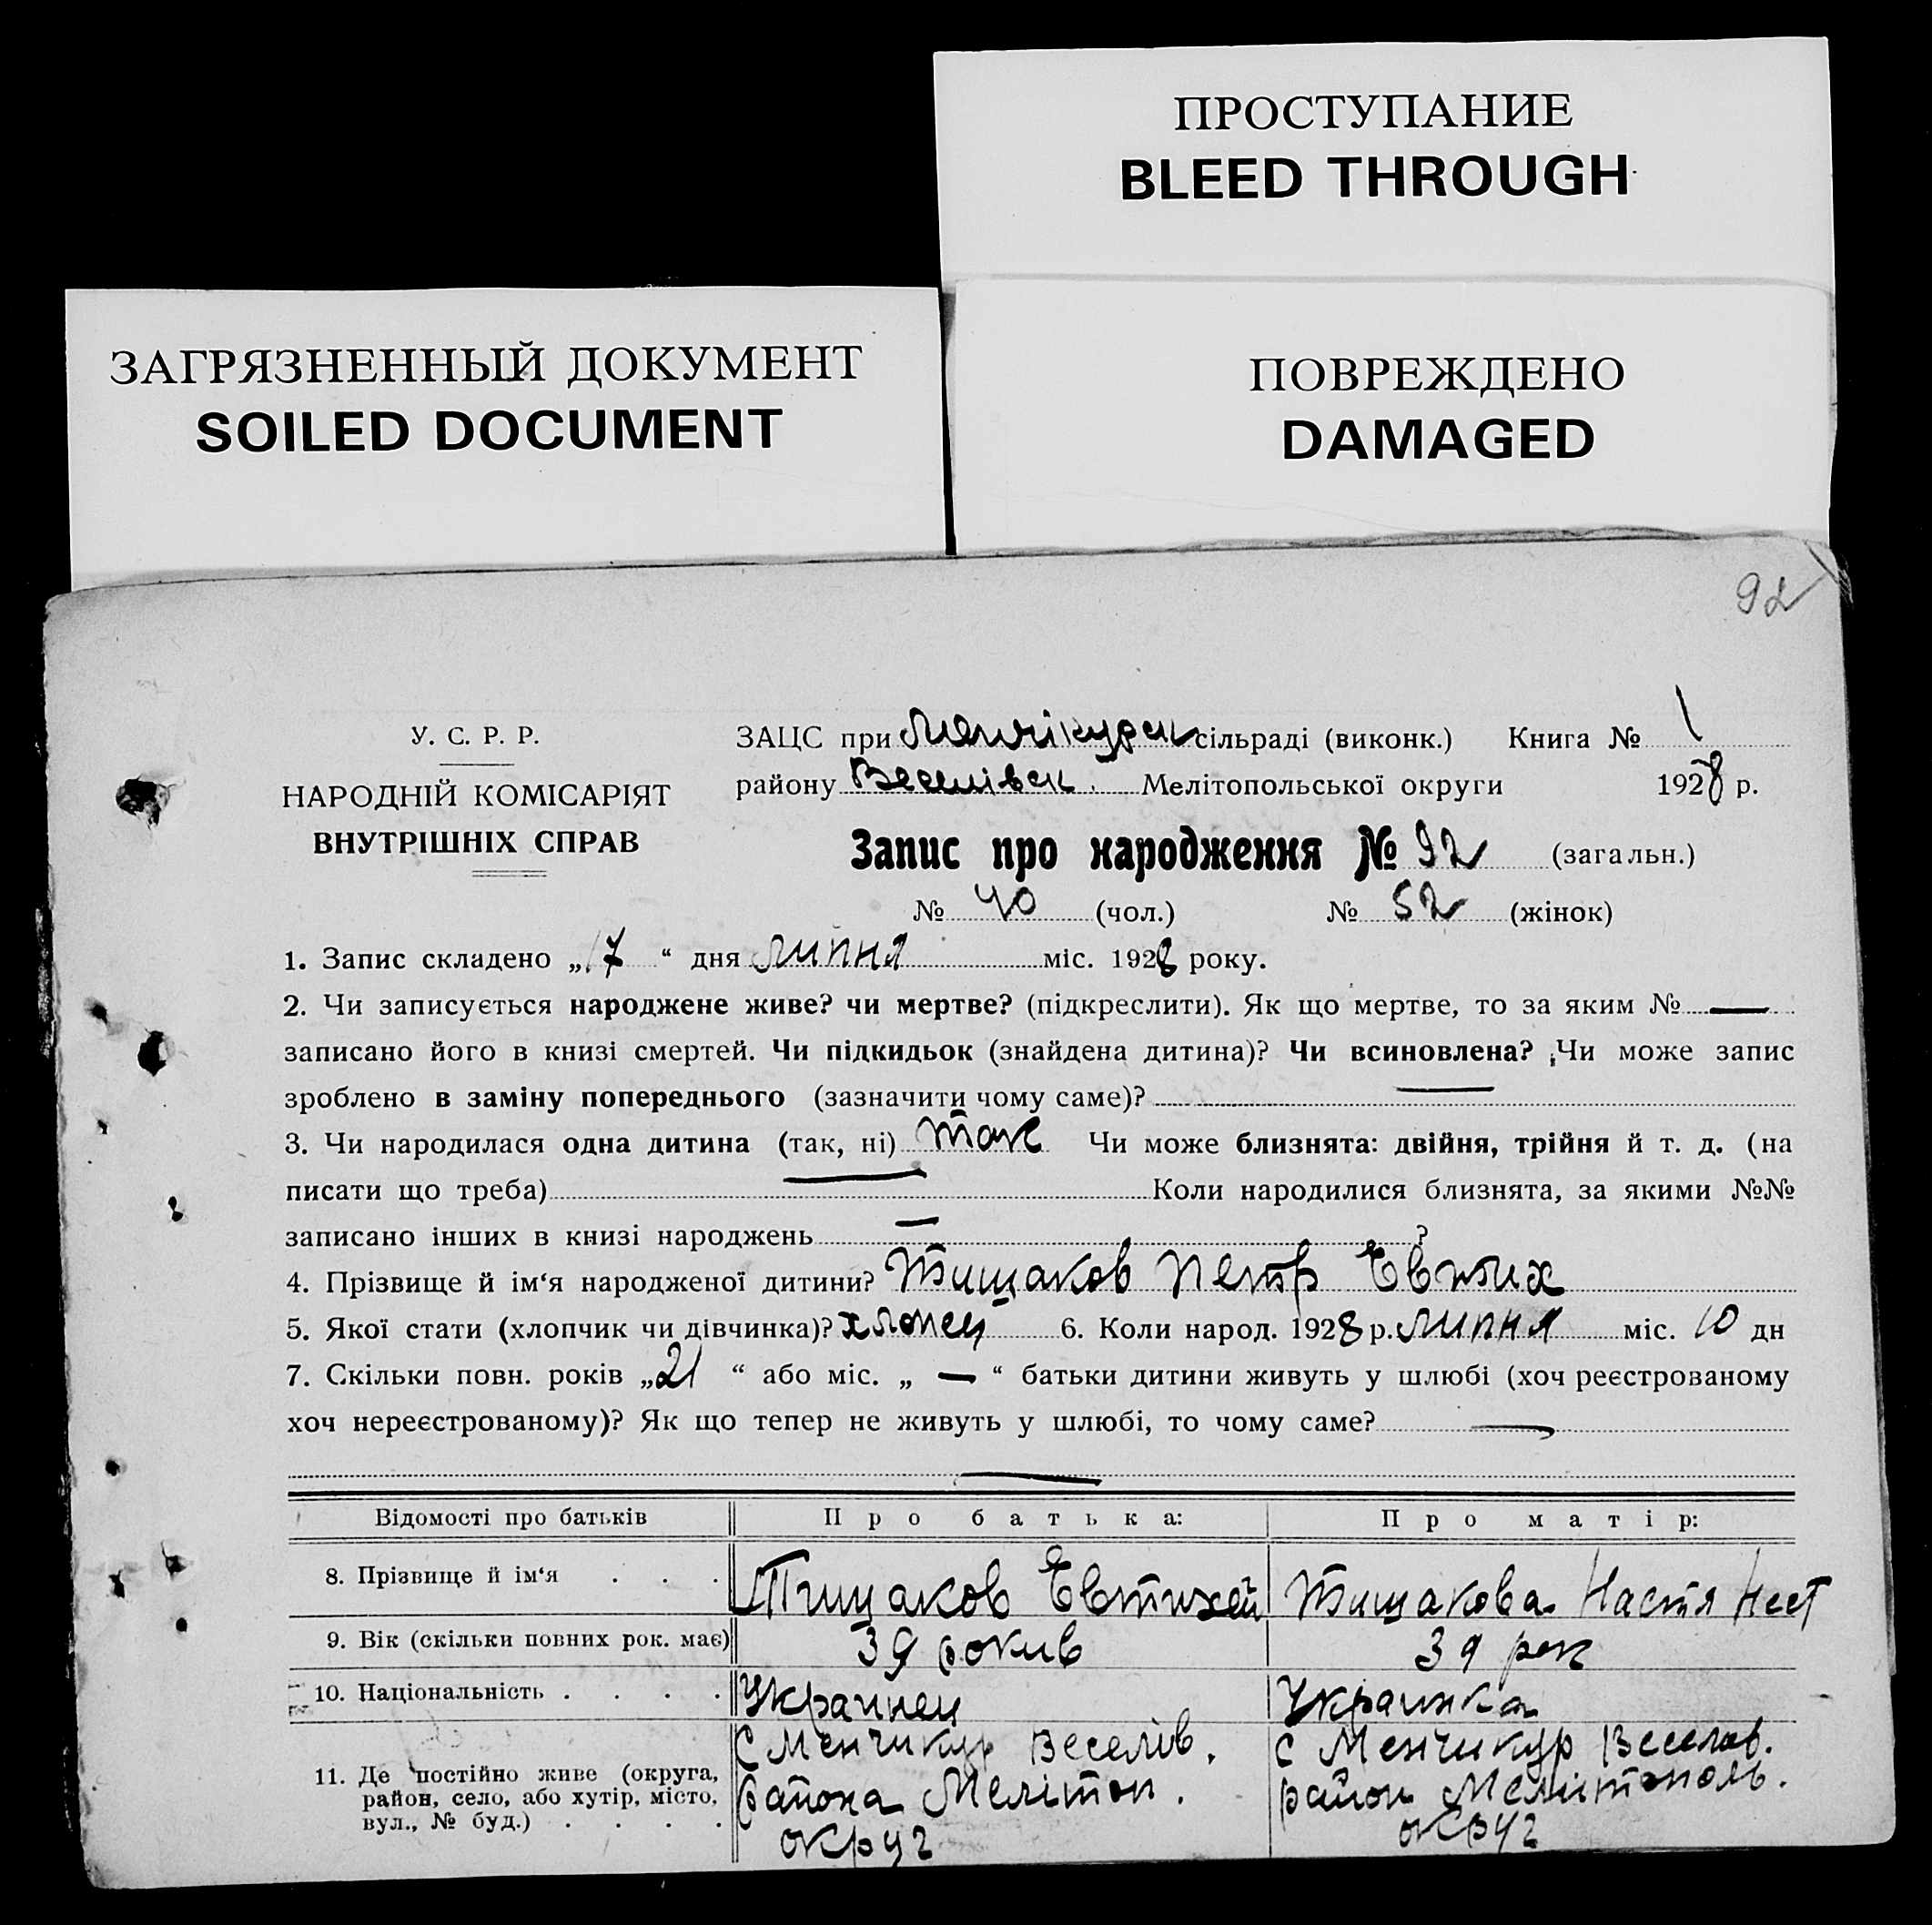 ПРОСТУПАНИЕ
BLEED THROUGH
ЗАГРЯЗНЕННЫЙ ДОКУМЕНТ
SOILED DOCUMENT
ПОВРЕЖДЕНО
DAMAGED
92
У. С. Р. Р.
НАРОДНІЙ КОМІСАРІЯТ
ВНУТРІШНІХ СПРАВ
ЗАЦС при Менчікурск сільраді (виконк.) Книга № 1
району Веселівск. Мелітопольської округи 1928 р.
Запис про народження № 92 (загальн.)
№ 40 (чол.) № 52 (жінок)
1. Запис складено „17“ дня липня міс. 1928 року.
2. Чи записується народжене живе? чи мертве? (підкреслити). Як що мертве, то за яким № —
записано його в книзі смертей. Чи підкидьок (знайдена дитина)? Чи всиновлена? Чи може запис
зроблено в заміну попереднього (зазначити чому саме)? —
3. Чи народилася одна дитина (так, ні) так Чи може близнята: двійня, трійня й т. д. (на
писати що треба) — Коли народилися близнята, за якими №№
записано інших в книзі народжень — ?
4. Прізвище й ім‘я народженої дитини? Тищаков Петр Євтих
5. Якої стати (хлопчик чи дівчинка)? хлопец 6. Коли народ. 1928 р. липня міс. 10 дн
7. Скільки повн. років „21“ або міс. „ — “ батьки дитини живуть у шлюбі (хоч реєстрованому
хоч нереєстрованому)? Як що тепер не живуть у шлюбі, то чому саме? —
—
Відомості про батьків Про батька: Про матір:
8. Прізвище й ім‘я . . . Тищаков Євтихей Тищакова Настя Нест
9. Вік (скільки повних рок. має) 39 рокив 39 рок
10. Національність . . . . Украинец Украинка
11. Де постійно живе (округа, район, село, або хутір, місто, вул., № буд.) . . . .
с Менчикур Веселів.
района Меліточ.
округ
с Менчикур Веселов.
район Мелітополь.
округ